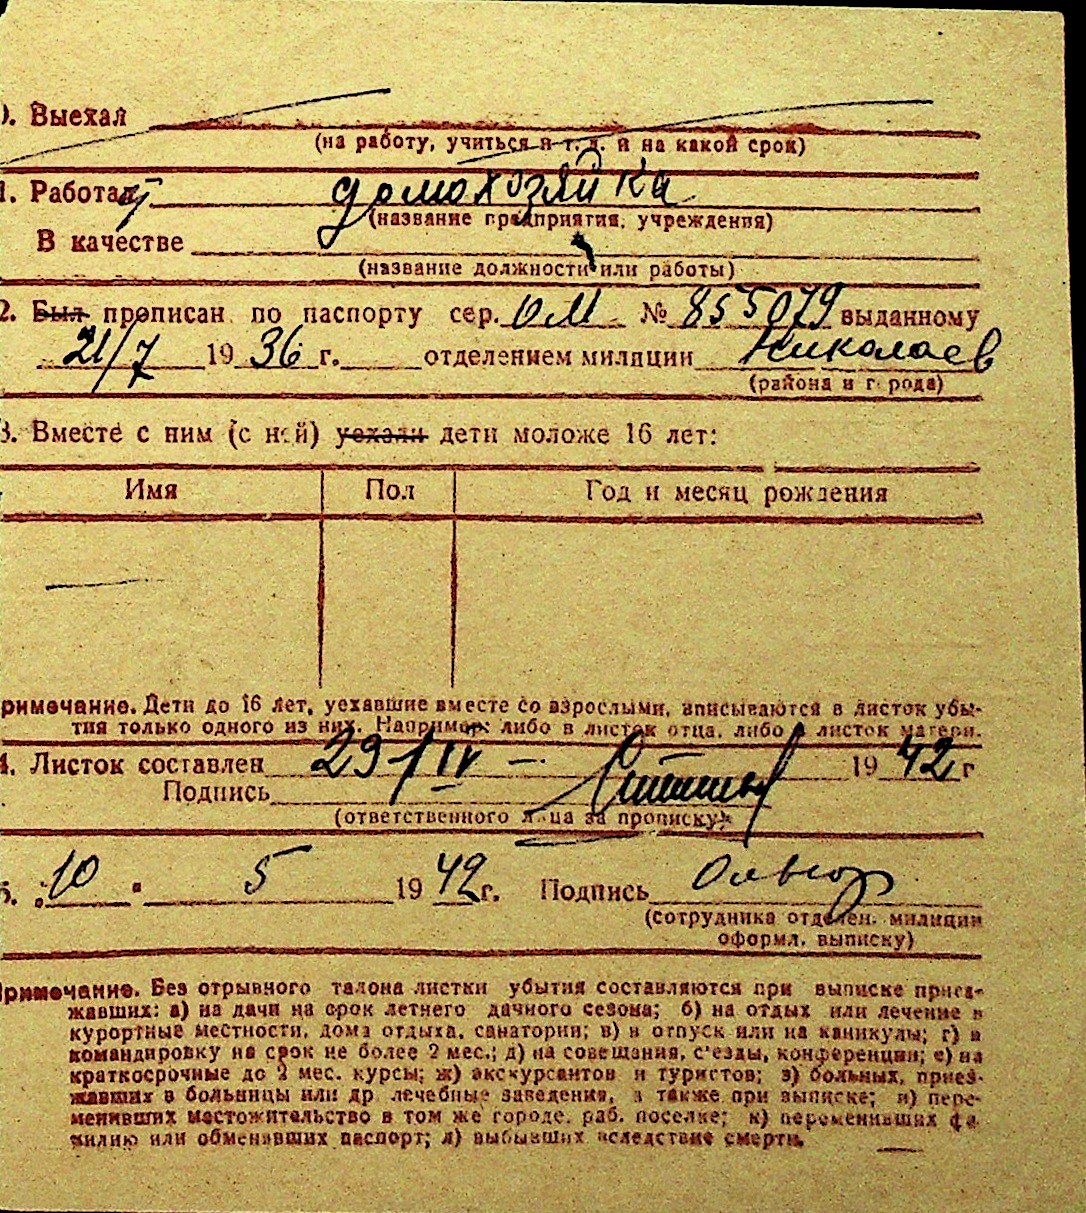 0. Выехал
(на работу, учиться и т. д. и на какой срок)
1. Работает домохозяйка
(название предприятия, учреждения)
В качестве
(название должности или работы)
2. Был прописан по паспорту сер. ОМ № 855079 выданному
21/7 1936 г. отделением милиции Николаев
(района и города)
3. Вместе с ним (с ней) уехали дети моложе 16 лет:
Имя Пол Год и месяц рождения
—
римечание. Дети до 16 лет, уехавшие вместе со взрослыми, вписываются в листок убы-
тия только одного из них. Например: либо в листок отца, либо в листок матери.
4. Листок составлен 29/IV – 1942 г
Подпись
(ответственного лица за прописку)
5. "10" 5 1942 г. Подпись
(сотрудника отделен. милиции
оформл. выписку)
Примечание. Без отрывного талона листки убытия составляются при выписке приез-
жавших: а) на дачи на срок летнего дачного сезона; б) на отдых или лечение в
курортные местности, дома отдыха, санатории; в) в отпуск или на каникулы; г) в
командировку на срок не более 2 мес.; д) на совещания, с'езды, конференции; е) на
краткосрочные до 2 мес. курсы; ж) экскурсантов и туристов; з) больных, приез-
жавших в больницы или др. лечебные заведения, а также при выписке; и) пере-
менивших местожительство в том же городе, раб. поселке; к) переменивших фа-
милию или обменявших паспорт; л) выбывших вследствие смерти.